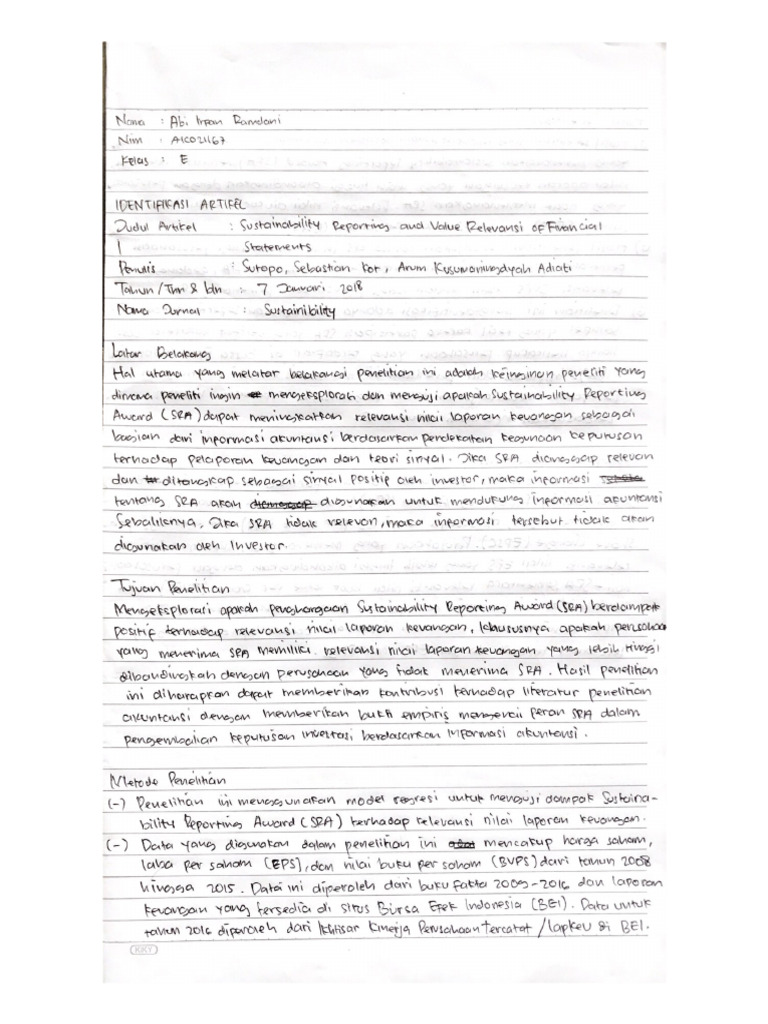 Nama : Abi Irpan Ramdani
Nim : A1C021167
Kelas : E
IDENTIFIKASI ARTIFEL
Judul Artikel : Sustainability Reporting and Value Relevansi of Financial
Statements
Penulis : Sutopo, Sebastian Kot, Arum Kusumaningdyah Adiati
Tahun/Thn & bln : 7 Januari 2018
Nama Jurnal : Sustainibility
Latar Belakang
Hal utama yang melatar belakangi penelitian ini adalah keinginan peneliti yang
dimana peneliti ingin mengeksplorasi dan menguji apakah Sustainability Reporting
Award (SRA) dapat meningkatkan relevansi nilai laporan keuangan sebagai
bagian dari informasi akuntansi berdasarkan pendekatan kegunaan keputusan
terhadap pelaporan keuangan dan teori sinyal. Jika SRA dianggap relevan
dan ditangkap sebagai sinyal positip oleh investor, maka informasi
tentang SRA akan digunakan untuk mendukung informasi akuntansi
Sebaliknya, Jika SRA tidak relevan, maka informasi tersebut tidak akan
digunakan oleh Investor.
Tujuan Penelitian
Mengeksplorasi apakah penghargaan Sustainability Reporting Award (SRA) berdampak
positip terhadap relevansi nilai laporan keuangan, khususnya apakah perusahaan
yang menerima SRA memiliki relevansi nilai laporan keuangan yang lebih tinggi
dibandingkah dengan perusahaan yang tidak menerima SRA. Hasil penelitian
ini diharapkan dapat memberikan kontribusi terhadap literatur penelitian
akuntansi dengan memberikan bukti empiris mengenai peran SRA dalam
pengembalian keputusan investasi berdasarkan informasi akuntansi.
Metode Penelitian
(-) Penelitian ini menggunakan model regresi untuk menguji dampak Sustaina-
bility Reporting Award (SRA) terhadap relevansi nilai laporan keuangan.
(-) Data yang digunakan dalam penelitian ini mencakup harga saham,
laba per saham (EPS), dan nilai buku per saham (BVPS) dari tahun 2008
hingga 2015. Data ini diperoleh dari buku fakta 2009-2016 dan laporan
keuangan yang tersedia di situs Bursa Efek Indonesia (BEI). Data untuk
tahun 2016 diperoleh dari Ikhtisar Kinerja Perusahaan tercatat/lapkeu di BEI.
KKY